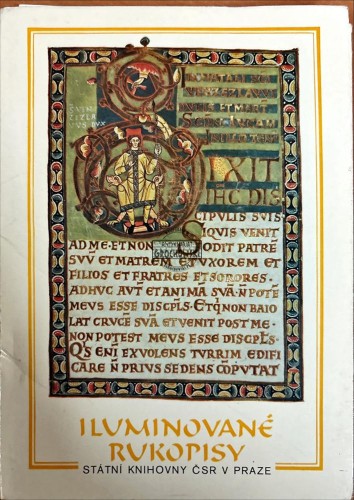 IXIT
IHC DIS
CIPULIS SUIS
SIQUIS VENIT
AD ME ET NON ODIT PATRĒ
SVV̄ ET MATREM ET VXOREM ET
FILIOS ET FRATRES ET SORORES
ADHVC AVT̄ ET ANIMĀ SVĀ N̄ POTĒ
MEVS ESSE DISCP̄LS ET Q̄ NON BAIO
LAT CRVCĒ SVĀ ET VENIT POST ME
NON POTEST MEVS ESSE DISCP̄LS
Q̄S ENĪ EX VOLENS TVRRIM EDIFI
CARE N̄ PRIVS SEDENS CŌPVTAT
ILUMINOVANÉ
RUKOPISY
STÁTNÍ KNIHOVNY ČSR V PRAZE